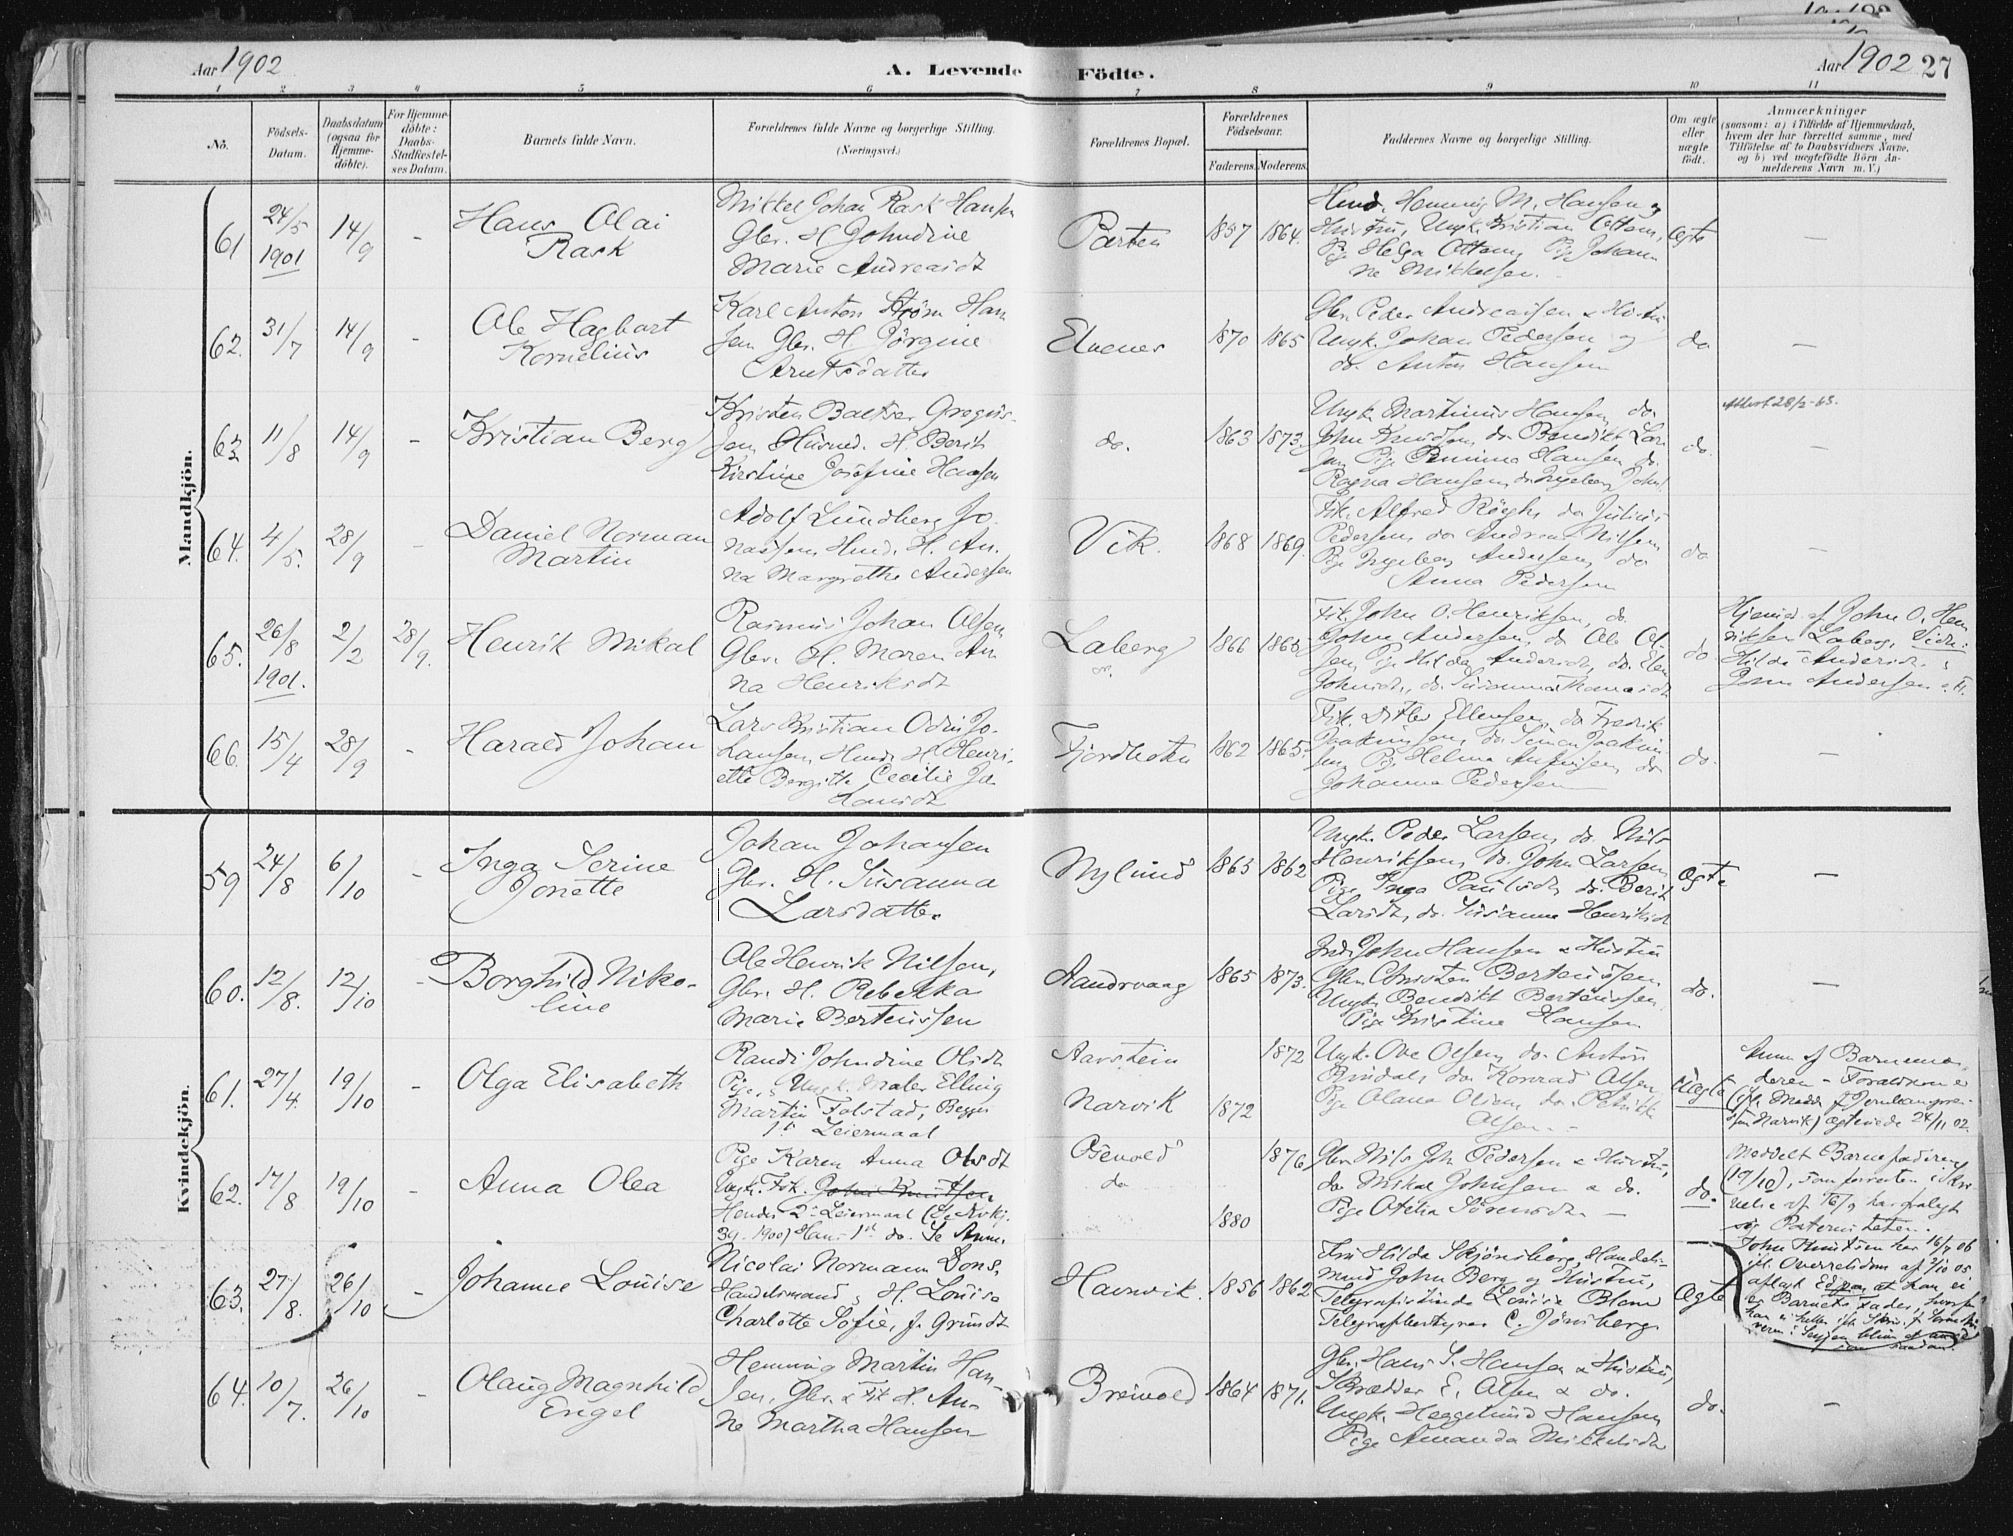 Aar 1902
A. Levende Födte.
Aar 1902 27
1 2 3 4 5 6 7 8 9 10 11
No.
Födsels-
Datum.
Daabsdatum
(ogsaa for
Hjemme-
döbte).
For Hjemme-
döbte:
Daabs-
Stadfæstel-
ses Datum.
Barnets fulde Navn.
Forældrenes fulde Navne og borgerlige Stilling.
(Næringsvei.)
Forældrenes Bopæl.
Forældrenes
Födselsaar.
Faderens. Moderens.
Faddernes Navne og borgerlige Stilling.
Om ægte
eller
uægte
födt.
Anmærkninger
(saasom: a) i Tilfælde af Hjemmedaab,
hvem der har forrettet samme, med
Tilföielse af to Daabsvidners Navne,
og b) ved uægtefödte Börn An-
melderens Navn m. V.)
Mandkjön.
61 24/5 1901 14/9 -
Hans Olai
Rask
Mikkel Johan Rask Hansen
Gbr. H. Johndine
Marie Andreasdt
Parten 1857 1864.
Hmd. Hemmig M. Hansen og
Hustru, Ungk. Kristian Ottem,
Pige Helga Ottem, Pige Johan
ne Mikkelsen.
Ægte —
62. 31/7 14/9 -
Ole Hagbart
Kornelius
Karl Anton Strøm Han
sen Gbr. H. Jørgine
Arntsdatter
Elvenes 1870 1865
Gbr. Peder Andreassen & Hustru
Ungk. Johan Pedersen og
do. Anton Hansen
do —
63 11/8 14/9 -
Kristian Berg
Kristen Baltser Gregus-
sen Husmd. H. Berit
Kirstine Josefine Hansen
do. 1863 1873.
Ungk. Martinus Hansen, do.
John Knudsen, do. Bendikt Lar
sen Pige Pernina Hansen, do.
Ragna Hansen, do. Ingeborg Johns.
do.
Attest 28/2-63.
—
64. 4/5. 28/9 -
Daniel Norman
Martin
Adolf Lundberg Jo.
nassen Hmd. H. An.
na Margrethe Andersen
Vik. 1868 1869.
Fik. Alfred Røgh, do Julius
Pedersen, do Andreas Nilsen
Pige Ingeborg Andersen, do
Anna Pedersen
do —
65. 26/8 1901. 2/2 28/9.
Henrik Mikal
Rasmus Johan Olsen
Gbr. H. Maren An
na Henriksdt
Laberg 1866 1865
Fik. John O. Henriksen, do.
John Andersen, do Ole Ol.
sen Pige Hilda Andersdt, do. Elen
Johnsdt, do. Susanna Hansdt
do
Hjemd. af John O. Hen
riksen Laberg. Vidn:
Hilda Andersdt. &
John Andersen
66. 15/4 28/9 -
Harald Johan
Lars Kristian Odin Jo-
hansen, Hmd. H. Henri-
ette Bergitte Cecilie Jo
hansdt
Fjordbotn 1862 1865.
Fik. Ditlev Ellensen, do Fredrik
Joakimsen, do. Simon Joakim
sen Pige Helma Antonsen, do
Johanna Pedersen
do. —
Kvindekjön.
59 24/8 6/10 -
Inga Serine
Jonette
Johan Johansen
Gbr. H. Susanna
Larsdatter
Nylund 1863 1862
Ungk. Peder Larsen, do. Nils
Henriksen, do. John Larsen
Pige Inga Paulsdt, do. Berit
Larsdt, do. Susanne Henriksdt
Ægte —
60. 12/8. 12/10 -
Borghild Niko-
line
Ole Henrik Nilsen,
Gbr. H. Rebekka
Marie Berteussen
Aandrvaag 1865 1873.
John Hansen & Hustru
Gbr. Christen Berteussen
Ungk. Bendikt Berteussen
Pige Kristine Hansen
do. —
61. 27/4. 19/10 -
Olga Elisabeth
Randi Johndine Olsdt
Pige, & Ungk. Maler Elling
Martin Folstad, Begges
1ste Leiermaal
Aarstein 1872
Narvik 1872
Ungk. Ove Olsen, do. Anton
Bendal, do Konrad Olsen,
Pige Olana Olsen, do. Petrikke
Olsen.
Uægte
Anm. af Barnemo-
deren - Forældrene
(jfr. Medd. f. Jernbanepræ-
sten Narvik) ægteviede 24/11 02.
62. 17/8 19/10 -
Anna Olea
Pige Karen Anna Olsdt
Ungk. Fik. John Knutsen
Hendes 2det Leiermaal
39. 1900) Hans 1st do. Se Anm.
Osevold 1876
do 1880
Gbr. Nils Joh. Pedersen & Hustru,
do Mikal Johnsen & do.
Pige Otelia Sörensdt.
do.
Meddelt Barnefaderen
(19/10), som forresten i Skri
velse af 16/9 har fralagt
sig Paterniteten.
John Knutsen har 16/7 06
ifl. Overretsdom af 9/10 05
aflagt Ed paa at han ei
er Barnets Fader,
63. 27/8. 26/10 -
Johanne Louise
Nicolai Normann Dons,
Handelsmand, H. Louise
Charlotte Sofie, f. Grundt
Havnvik. 1856 1862
Fru Hilda Skjönsberg, Handels-
mand John Berg og Hustru,
Telegrafistinde Louise Blom
Telegrafbestyrer C. Jönsberg
Ægte
64. 10/7. 26/10 -
Olaug Magnhild
Engel
Hemming Martin Han-
sen, Gbr. & Fik. H. An-
ne Martha Hansen
Breivold 1864 1871.
Gbr. Hans S. Hansen & Hustru,
Skrædder E. Olsen & do.
Ungk. Heggelund Hansen,
Pige Amanda Mikkelsdt
do. —